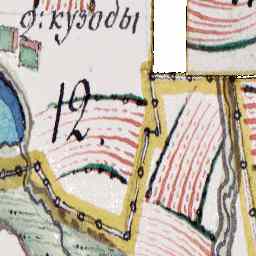 д: кузоды
12.